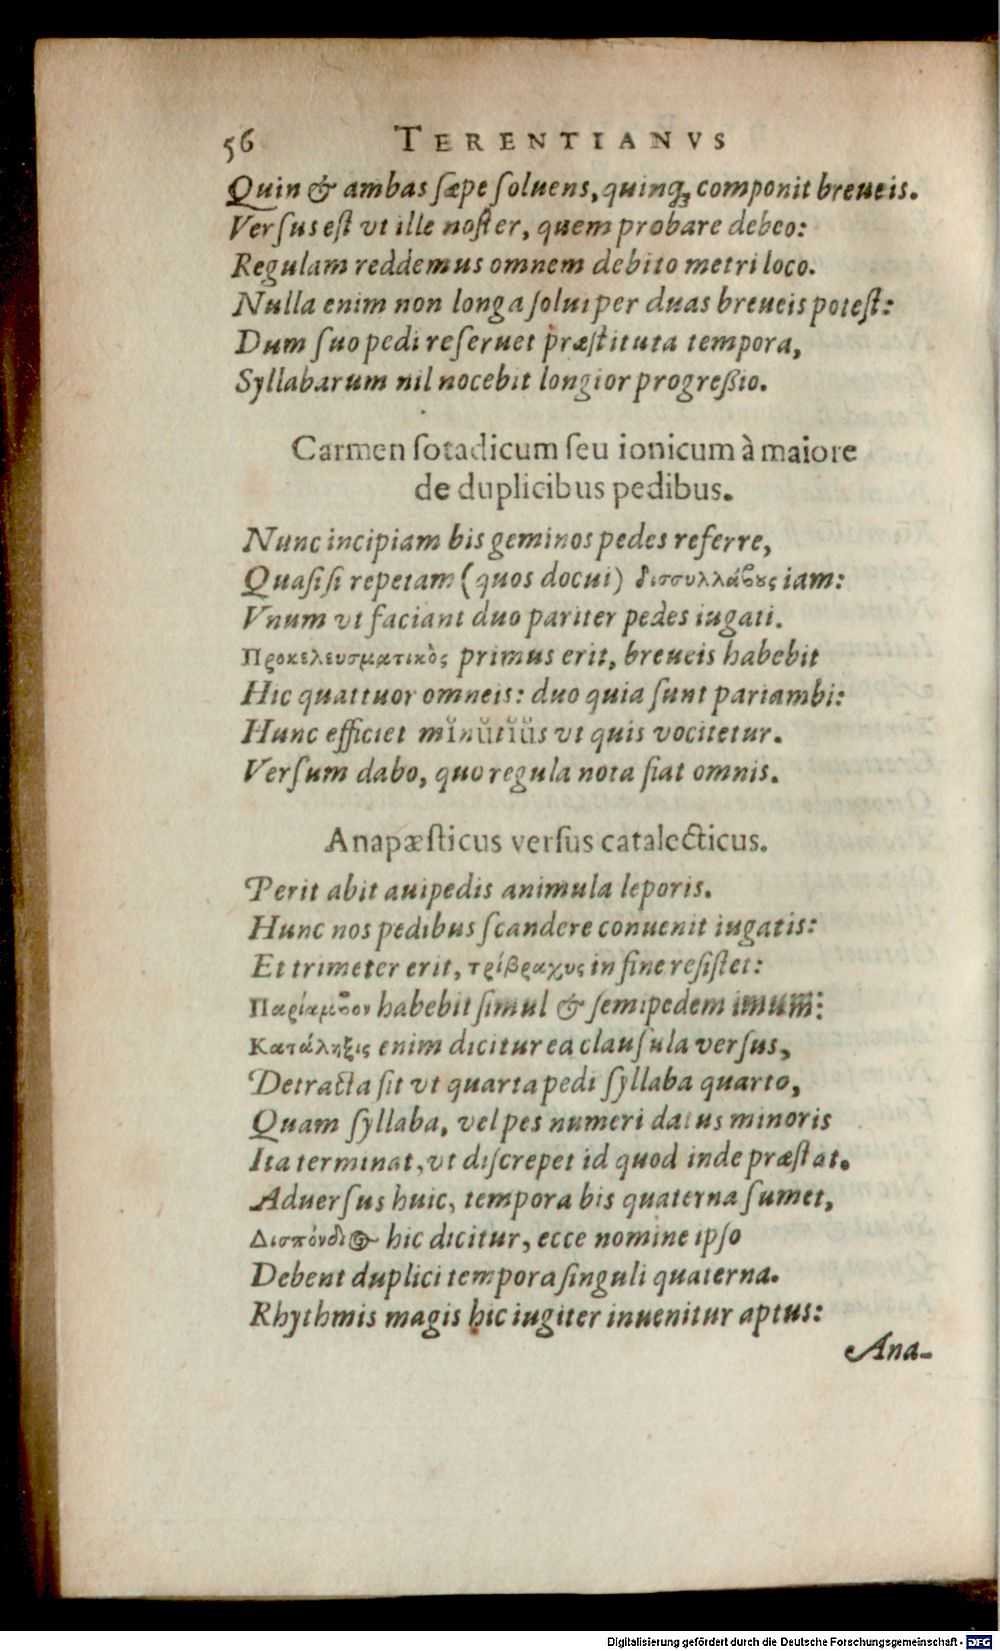 56 TERENTIANVS
Quin & ambas sæpe soluens, quinq; componit breueis.
Versus est vt ille noster, quem probare debeo:
Regulam reddemus omnem debito metri loco.
Nulla enim non longa solui per duas breueis potest:
Dum suo pedi reseruet præstituta tempora,
Syllabarum nil nocebit longior progreßio.
Carmen sotadicum seu ionicum à maiore
de duplicibus pedibus.
Nunc incipiam bis geminos pedes referre,
Quasi si repetam (quos docui) δισσυλλάβους iam:
Vnum vt faciant duo pariter pedes iugati.
Προκελευσματικὸς primus erit, breueis habebit
Hic quattuor omneis: duo quia sunt pariambi:
Hunc efficiet mĭnŭtĭŭs vt quis vocitetur.
Versum dabo, quo regula nota fiat omnis.
Anapæsticus versus catalecticus.
Perit abit auipedis animula leporis.
Hunc nos pedibus scandere conuenit iugatis:
Et trimeter erit, τρίβραχυς in fine resistet:
Παρίαμβον habebit simul & semipedem imum:
Κατάληξις enim dicitur ea clausula versus,
Detracta sit vt quarta pedi syllaba quarto,
Quam syllaba, vel pes numeri datus minoris
Ita terminat, vt discrepet id quod inde præstat.
Aduersus huic, tempora bis quaterna sumet,
Δισπόνδιος hic dicitur, ecce nomine ipso
Debent duplici tempora singuli quaterna.
Rhythmis magis hic iugiter inuenitur aptus:
Ana-
Digitalisierung gefördert durch die Deutsche Forschungsgemeinschaft - DFG